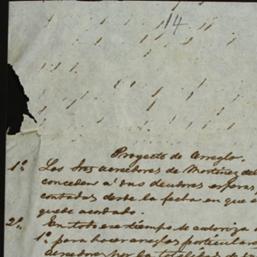 14
Proyecto de Arreglo.
1º Los tres acreedores de Martinez del
conceden á sus deudores esperas,
contados desde la fecha en que
quede acordado.
2º En todo ese tiempo se autoriza
1º para hacer arreglos particulares
acreedores por la totalidad de